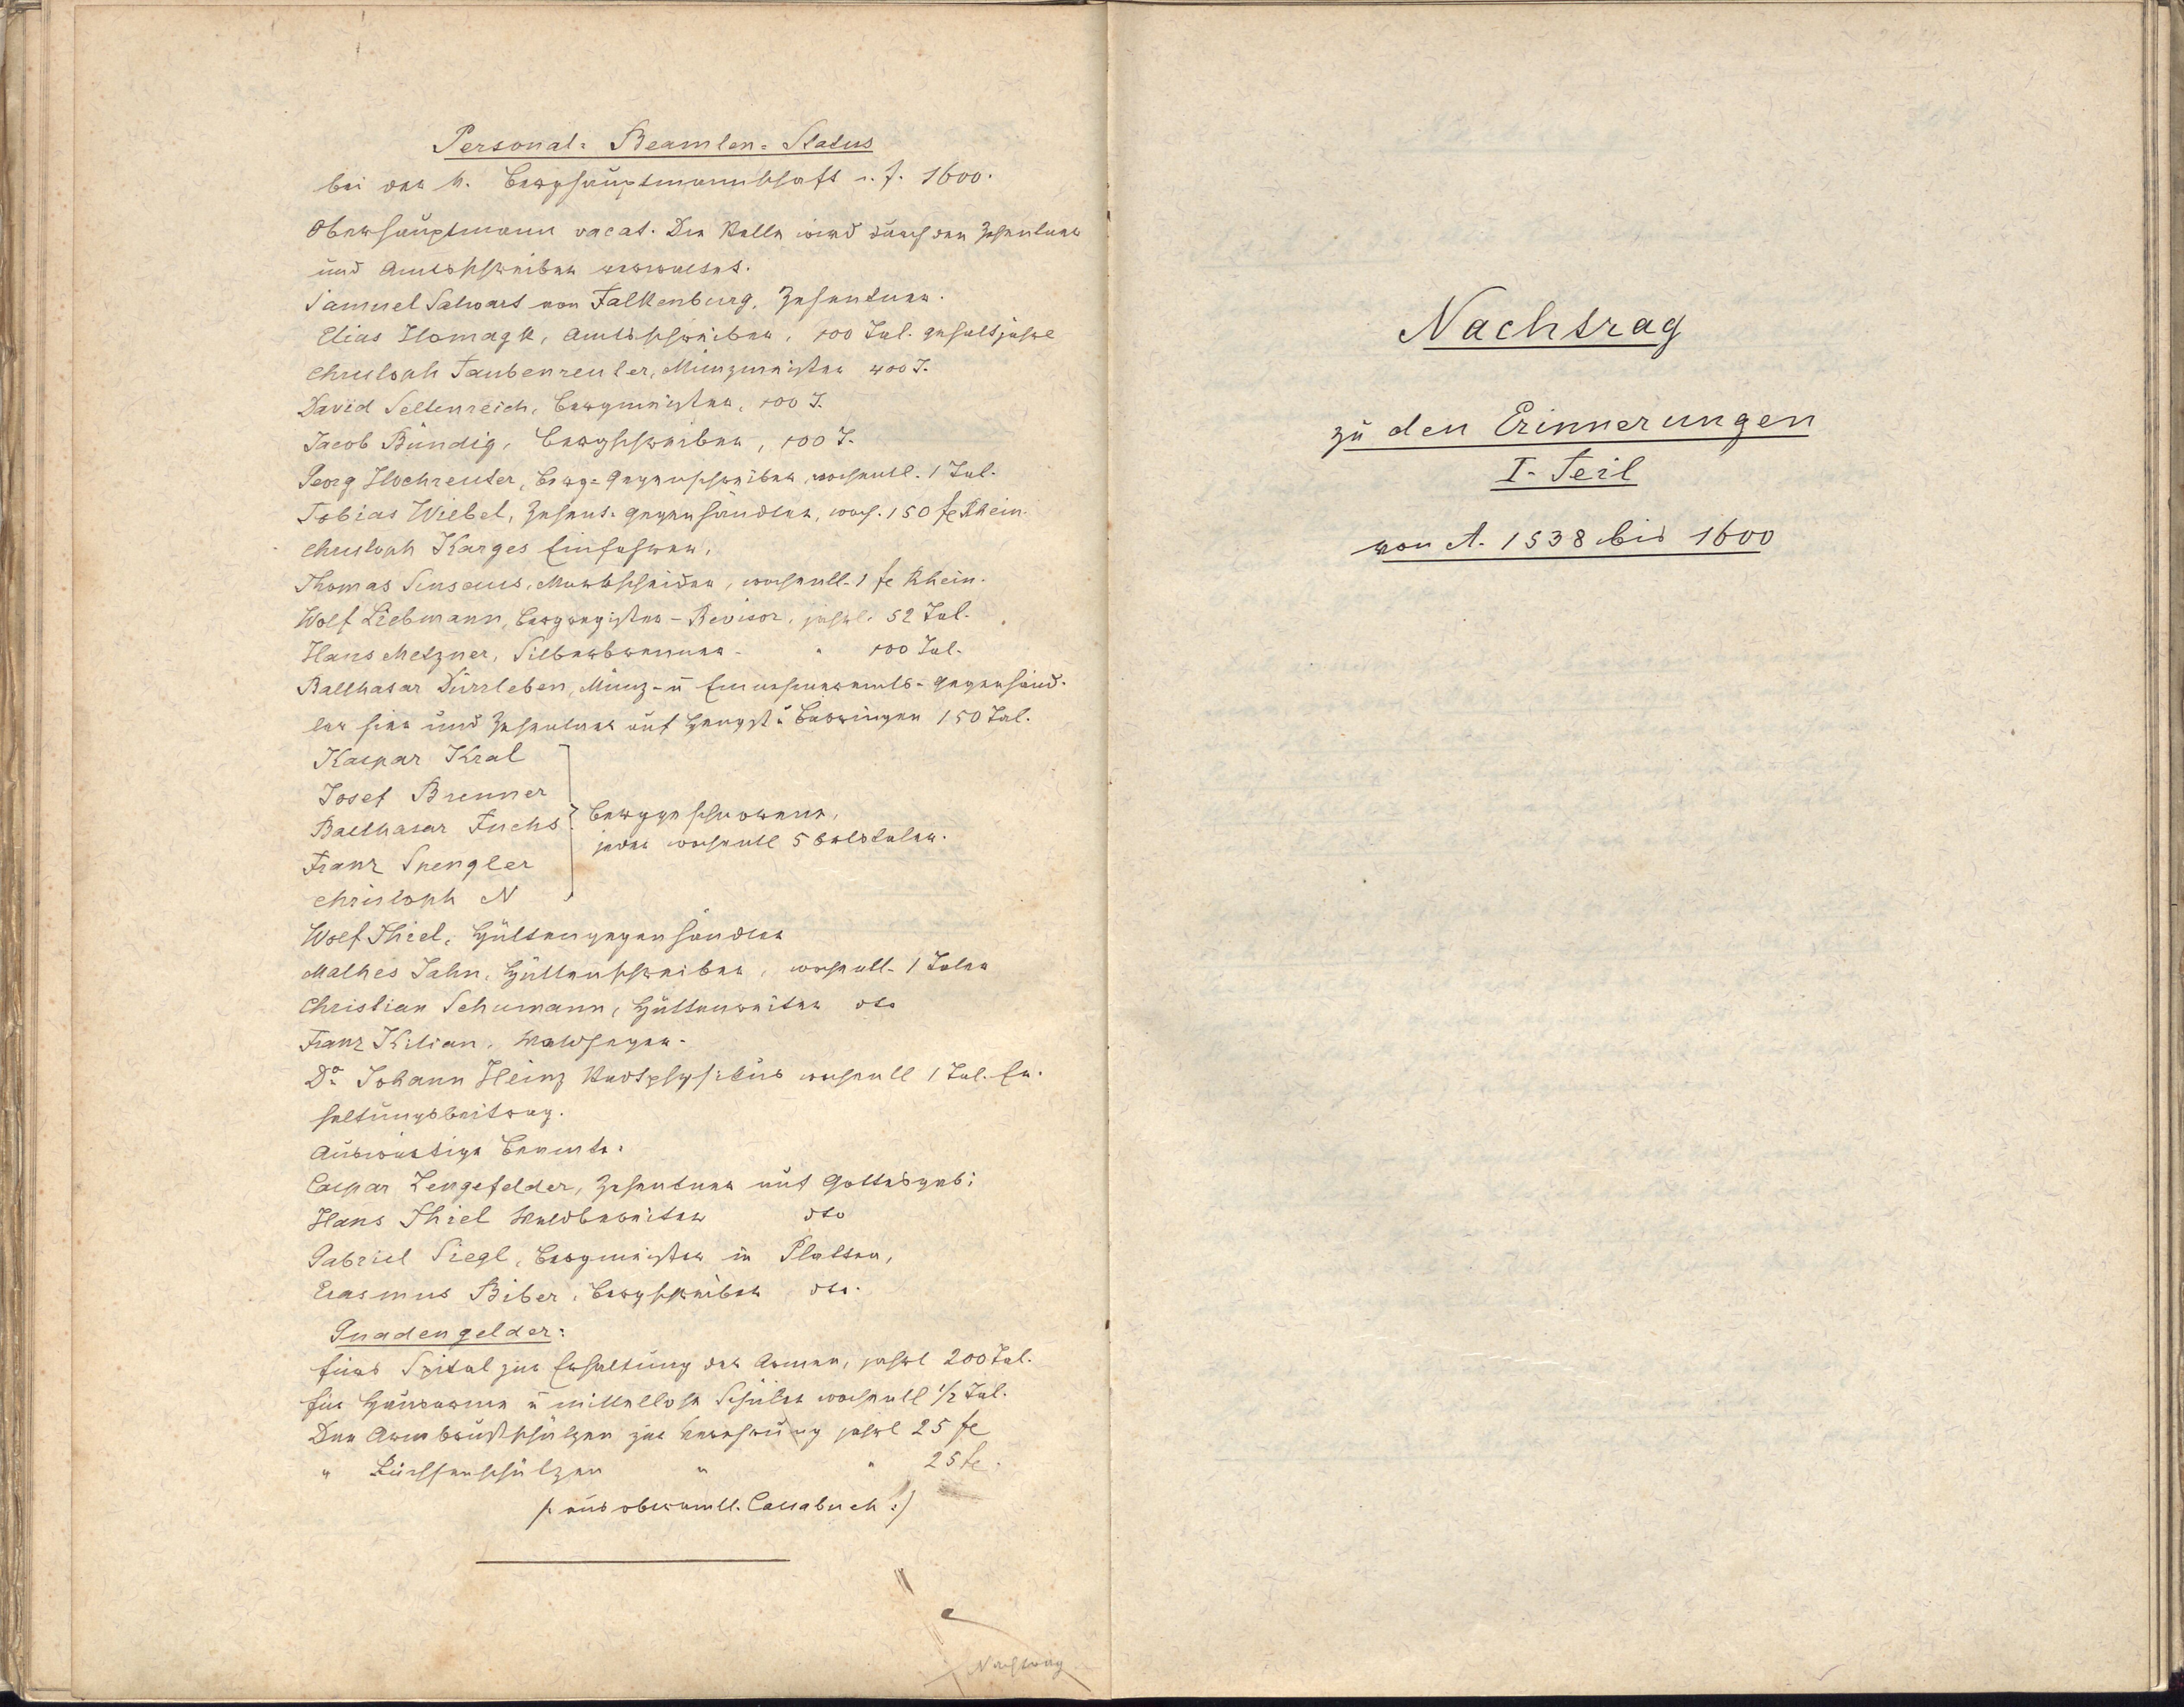 Personal- Beamten- Status
bei der k. Berghauptmannschaft i. J. 1600.
Oberhauptmann vacat. Die Stelle wird durch den Zehentner
und Amtsschreiber verwaltet.
Samuel Salwart von Falkenburg, Zehentner.
Elias Homagk, Amtsschreiber, 100 Tal. Gehalt jährl
Christoph Taubenreuter, Münzmeister 400 T.
David Seltenreich, Bergmeister, 100 T.
Jacob Bündig, Bergschreiber, 100 T.
Georg Hochreuter, Berg-Gegenschreiber, wochentl. 1 Tal.
Tobias Wiebel, Zehent-Gegenhändler, woch. 150 fl Rhein.
Christoph Karges Einfahrer,
Thomas Markscheider, wochentl. 1 fl Rhein.
Wolf Liebmann, Bergregister-Revisor, jährl. 52 Tal.
Hans Metzner, Silberbrenner - " 100 Tal.
Balthasar Dürrleben, Münz- u Einnehmeramts-Gegenhänd-
ler hier und Zehentner auf Hengst u Perringen 150 Tal.
Kaspar Kral
Josef Brenner
Balthasar Fuchs
Franz Spengler
Christoph N
Berggeschworene,
jeder wochentl 5 Ortstaler.
Wolf Thiel, Hüttengegenhändler
Mathes Jahn, Hüttenschreiber, wochentl. 1 Taler
Christian Schumann, Hüttenreiter dto
Franz Kilian, Waldheger.
Dr. Johann Heinz Stadtphysikus wochentl 1 Tal. Er-
haltungsbeitrag.
Auswärtige Beamte:
Caspar Lengefelder, Zehentner auf Gottesgab;
Hans Thiel Waldbereiter dto
Gabriel Siegl, Bergmeister in Platten,
Erasmus Biber, Bergschreiber dto.
Gnadengelder:
fürs Spital zur Erhaltung der Armen, jährl 200 Tal.
für Hausarme u mittellose Schüler wochentl 1/2 Tal.
Den Armbrustschützen zur Verehrung jährl 25 fl
" Büchsenschützen " " 25 fl.
/: aus oberamtl. Cassabuch :/
Nachtrag
Nachtrag
zu den Erinnerungen
I. Teil
von A. 1538 bis 1600